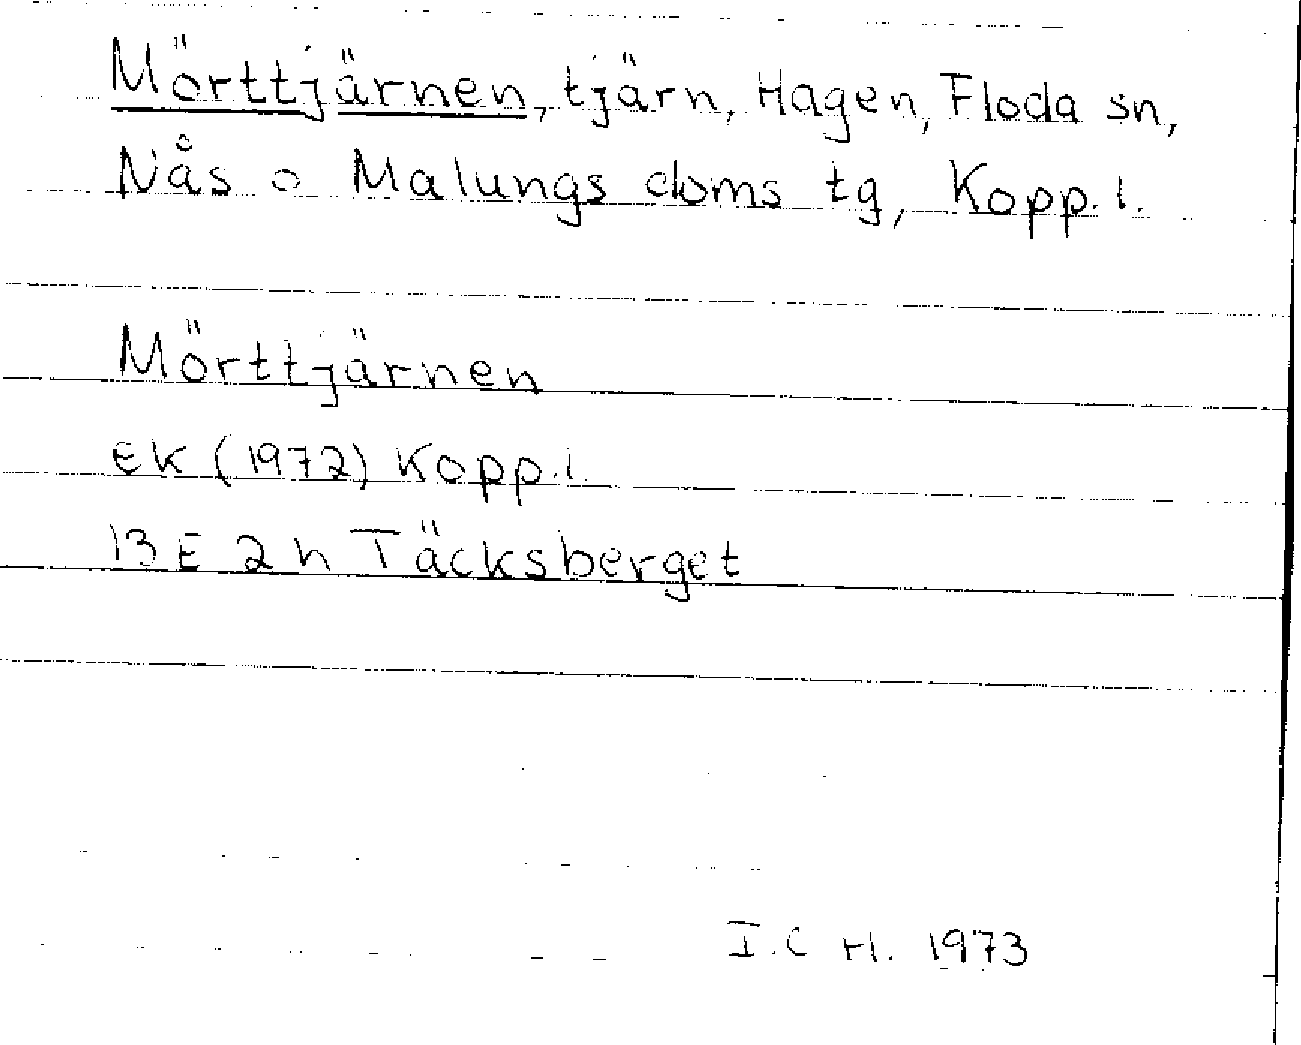 Mörttjärnen, tjärn, Hagen, Floda sn,
Nås o Malungs doms tg, Kopp. l.
Mörttjärnen
EK (1972) Kopp. l.
13 E 2 h Täcksberget
I. C H. 1973